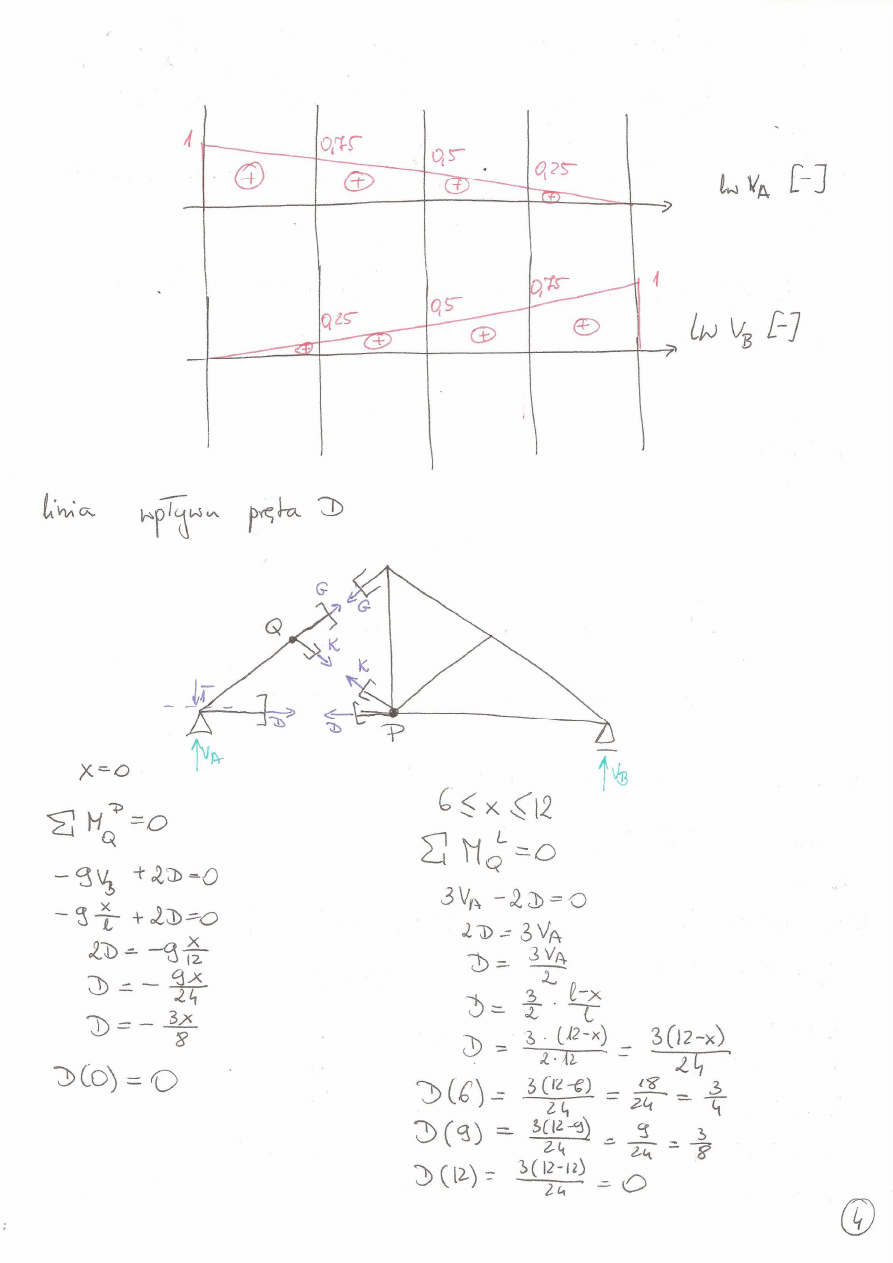 1 0,75 0,5 0,25 lw V_A [-]
0,25 0,5 0,75 1 lw V_B [-]
linia wpływu pręta D
G
G
Q K
K
1
D D P
V_A V_B
x=0
ΣM_Q^P=0
-9V_B+2D=0
-9 x/l + 2D=0
2D=-9 x/12
D=-9x/24
D=-3x/8
D(0)=0
6≤x≤12
ΣM_Q^L=0
3V_A-2D=0
2D=3V_A
D=3V_A/2
D=3/2 · l-x/l
D = 3·(12-x)/2·12 = 3(12-x)/24
D(6)= 3(12-6)/24 = 18/24 = 3/4
D(9) = 3(12-9)/24 = 9/24 = 3/8
D(12)= 3(12-12)/24 = 0
4